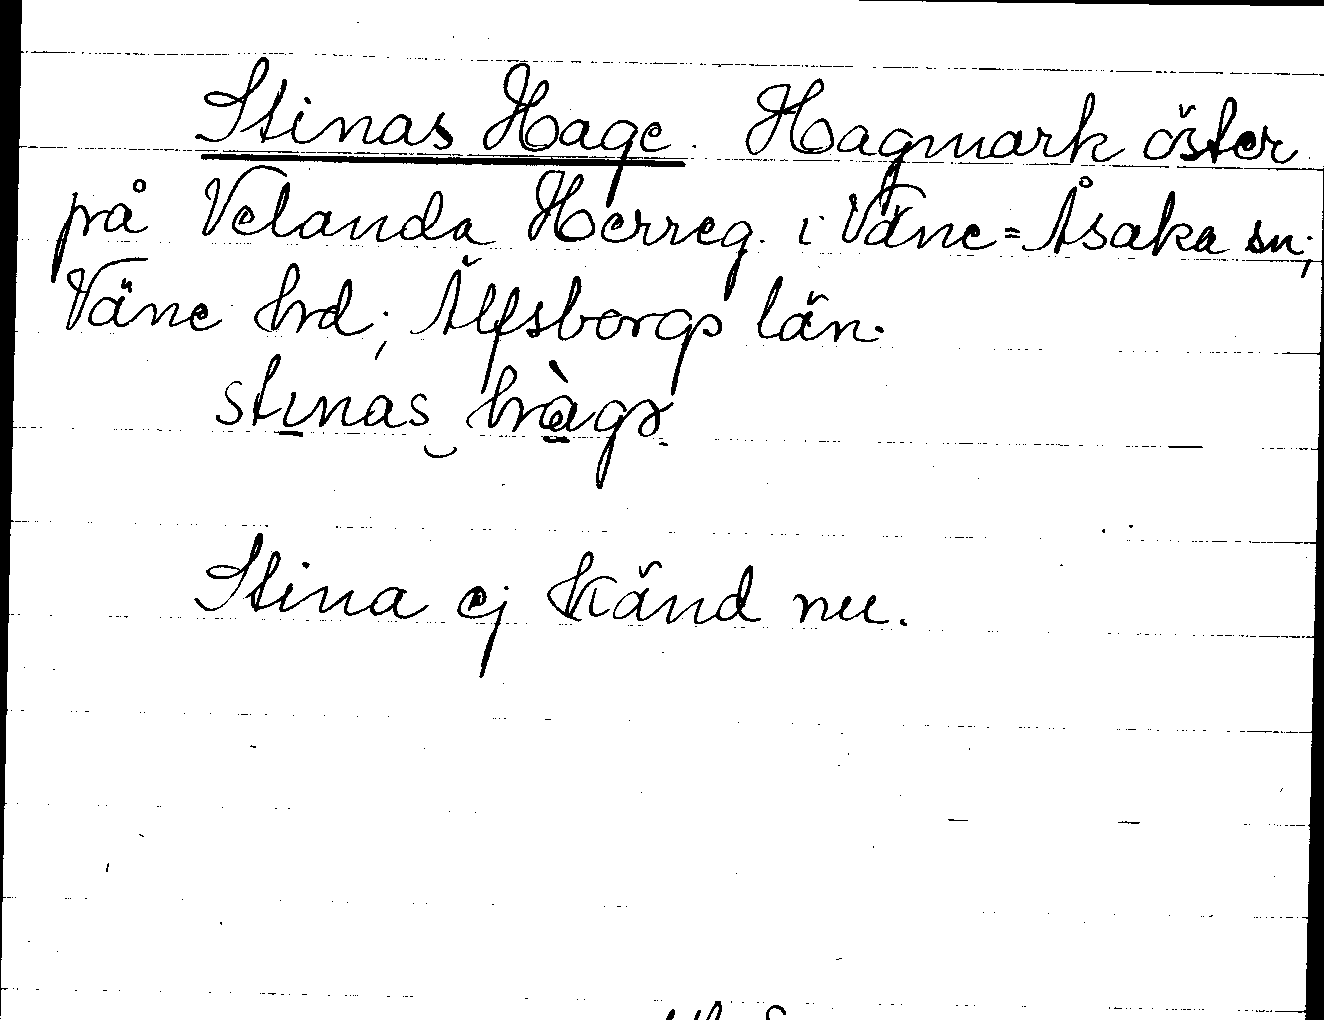 Stinas Hage. Hagmark öster
på Velanda Herreg. i Väne=Åsaka sn;
Väne hrd; Älfsborgs län.
stinas hàgə.
Stina ej känd nu.